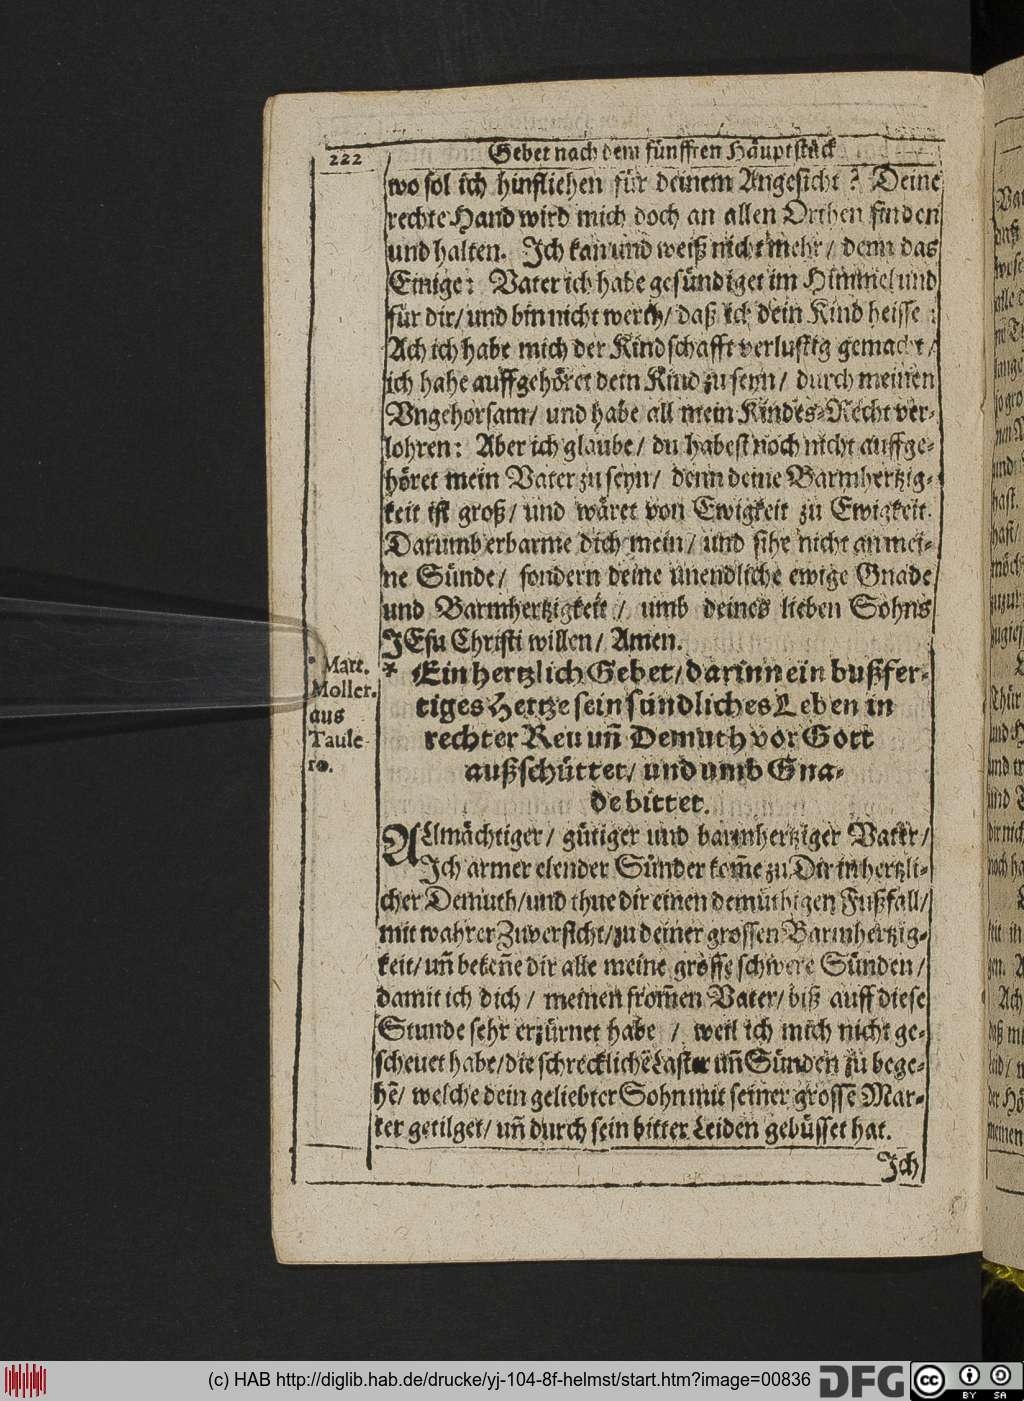 222
Gebet nach dem fünfften Hauptstück
wo sol ich hinfliehen für deinem Angesicht? Deine
rechte Hand wird mich doch an allen Orthen finden
und halten. Ich kan und weiß nicht mehr/ denn das
Einige: Vater ich habe gesündiget im Himmel und
für dir/ und bin nicht werth/ daß ich dein Kind heisse:
Ach ich habe mich der Kindschafft verlustig gemacht/
ich habe auffgehöret dein Kind zu seyn/ durch meinen
Vngehorsam/ und habe all mein Kindes-Recht ver-
lohren: Aber ich glaube/ du habest noch nicht auffge-
höret mein Vater zu seyn/ denn deine Barmhertzig-
keit ist groß/ und wäret von Ewigkeit zu Ewigkeit.
Darumb erbarme dich mein/ und sihe nicht an mei-
ne Sünde/ sondern deine unendliche ewige Gnade
und Barmhertzigkeit/ umb deines lieben Sohns
JEsu Christi willen/ Amen.
* Mart.
Moller.
aus
Taule-
ro.
* Ein hertzlich Gebet/ darinn ein bußfer-
tiges Hertze sein sündliches Leben in
rechter Reu uñ Demuth vor Gott
außschüttet/ und umb Gna-
de bittet.
ALmächtiger/ gütiger und barmhertziger Vater/
Ich armer elender Sünder kom̃e zu Dir in hertzli-
cher Demuth/ und thue dir einen demüthigen Fußfall/
mit wahrer Zuversicht/ zu deiner grossen Barmhertzig-
keit/ uñ bekeñe dir alle meine grosse schwere Sünden/
damit ich dich/ meinen from̃en Vater/ biß auff diese
Stunde sehr erzürnet habe/ weil ich mich nicht ge-
scheuet habe/ die schrecklichẽ Laster uñ Sünden zu bege-
hẽ/ welche dein geliebter Sohn mit seiner grossẽ Mar-
ter getilget/ uñ durch sein bitter Leiden gebüsset hat.
Ich
(c) HAB http://diglib.hab.de/drucke/yj-104-8f-helmst/start.htm?image=00836
DFG
cc
BY SA